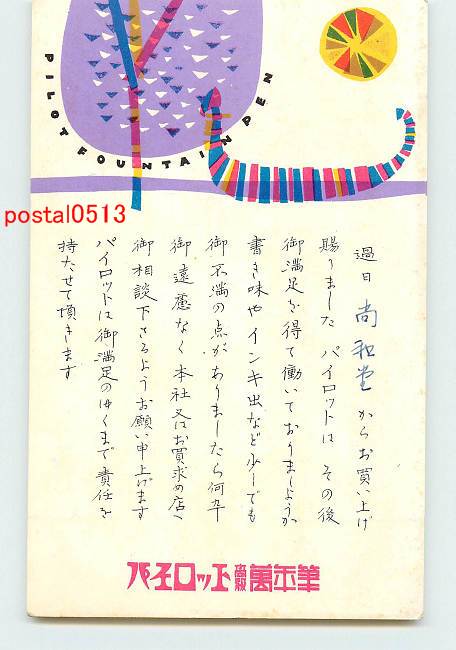 PILOT FOUNTAIN PEN
postal0513
過日 尚和堂 からお買い上げ
賜りました パイロットは その後
御満足を得て働いておりましようか
書き味やインキ出など少しでも
御不満の点がありましたら何卒
御遠慮なく本社又はお買求め店へ
御相談下さるようお願い申上げます
パイロットは御満足のゆくまで責任を
持たせて頂きます
パイロット高級萬年筆